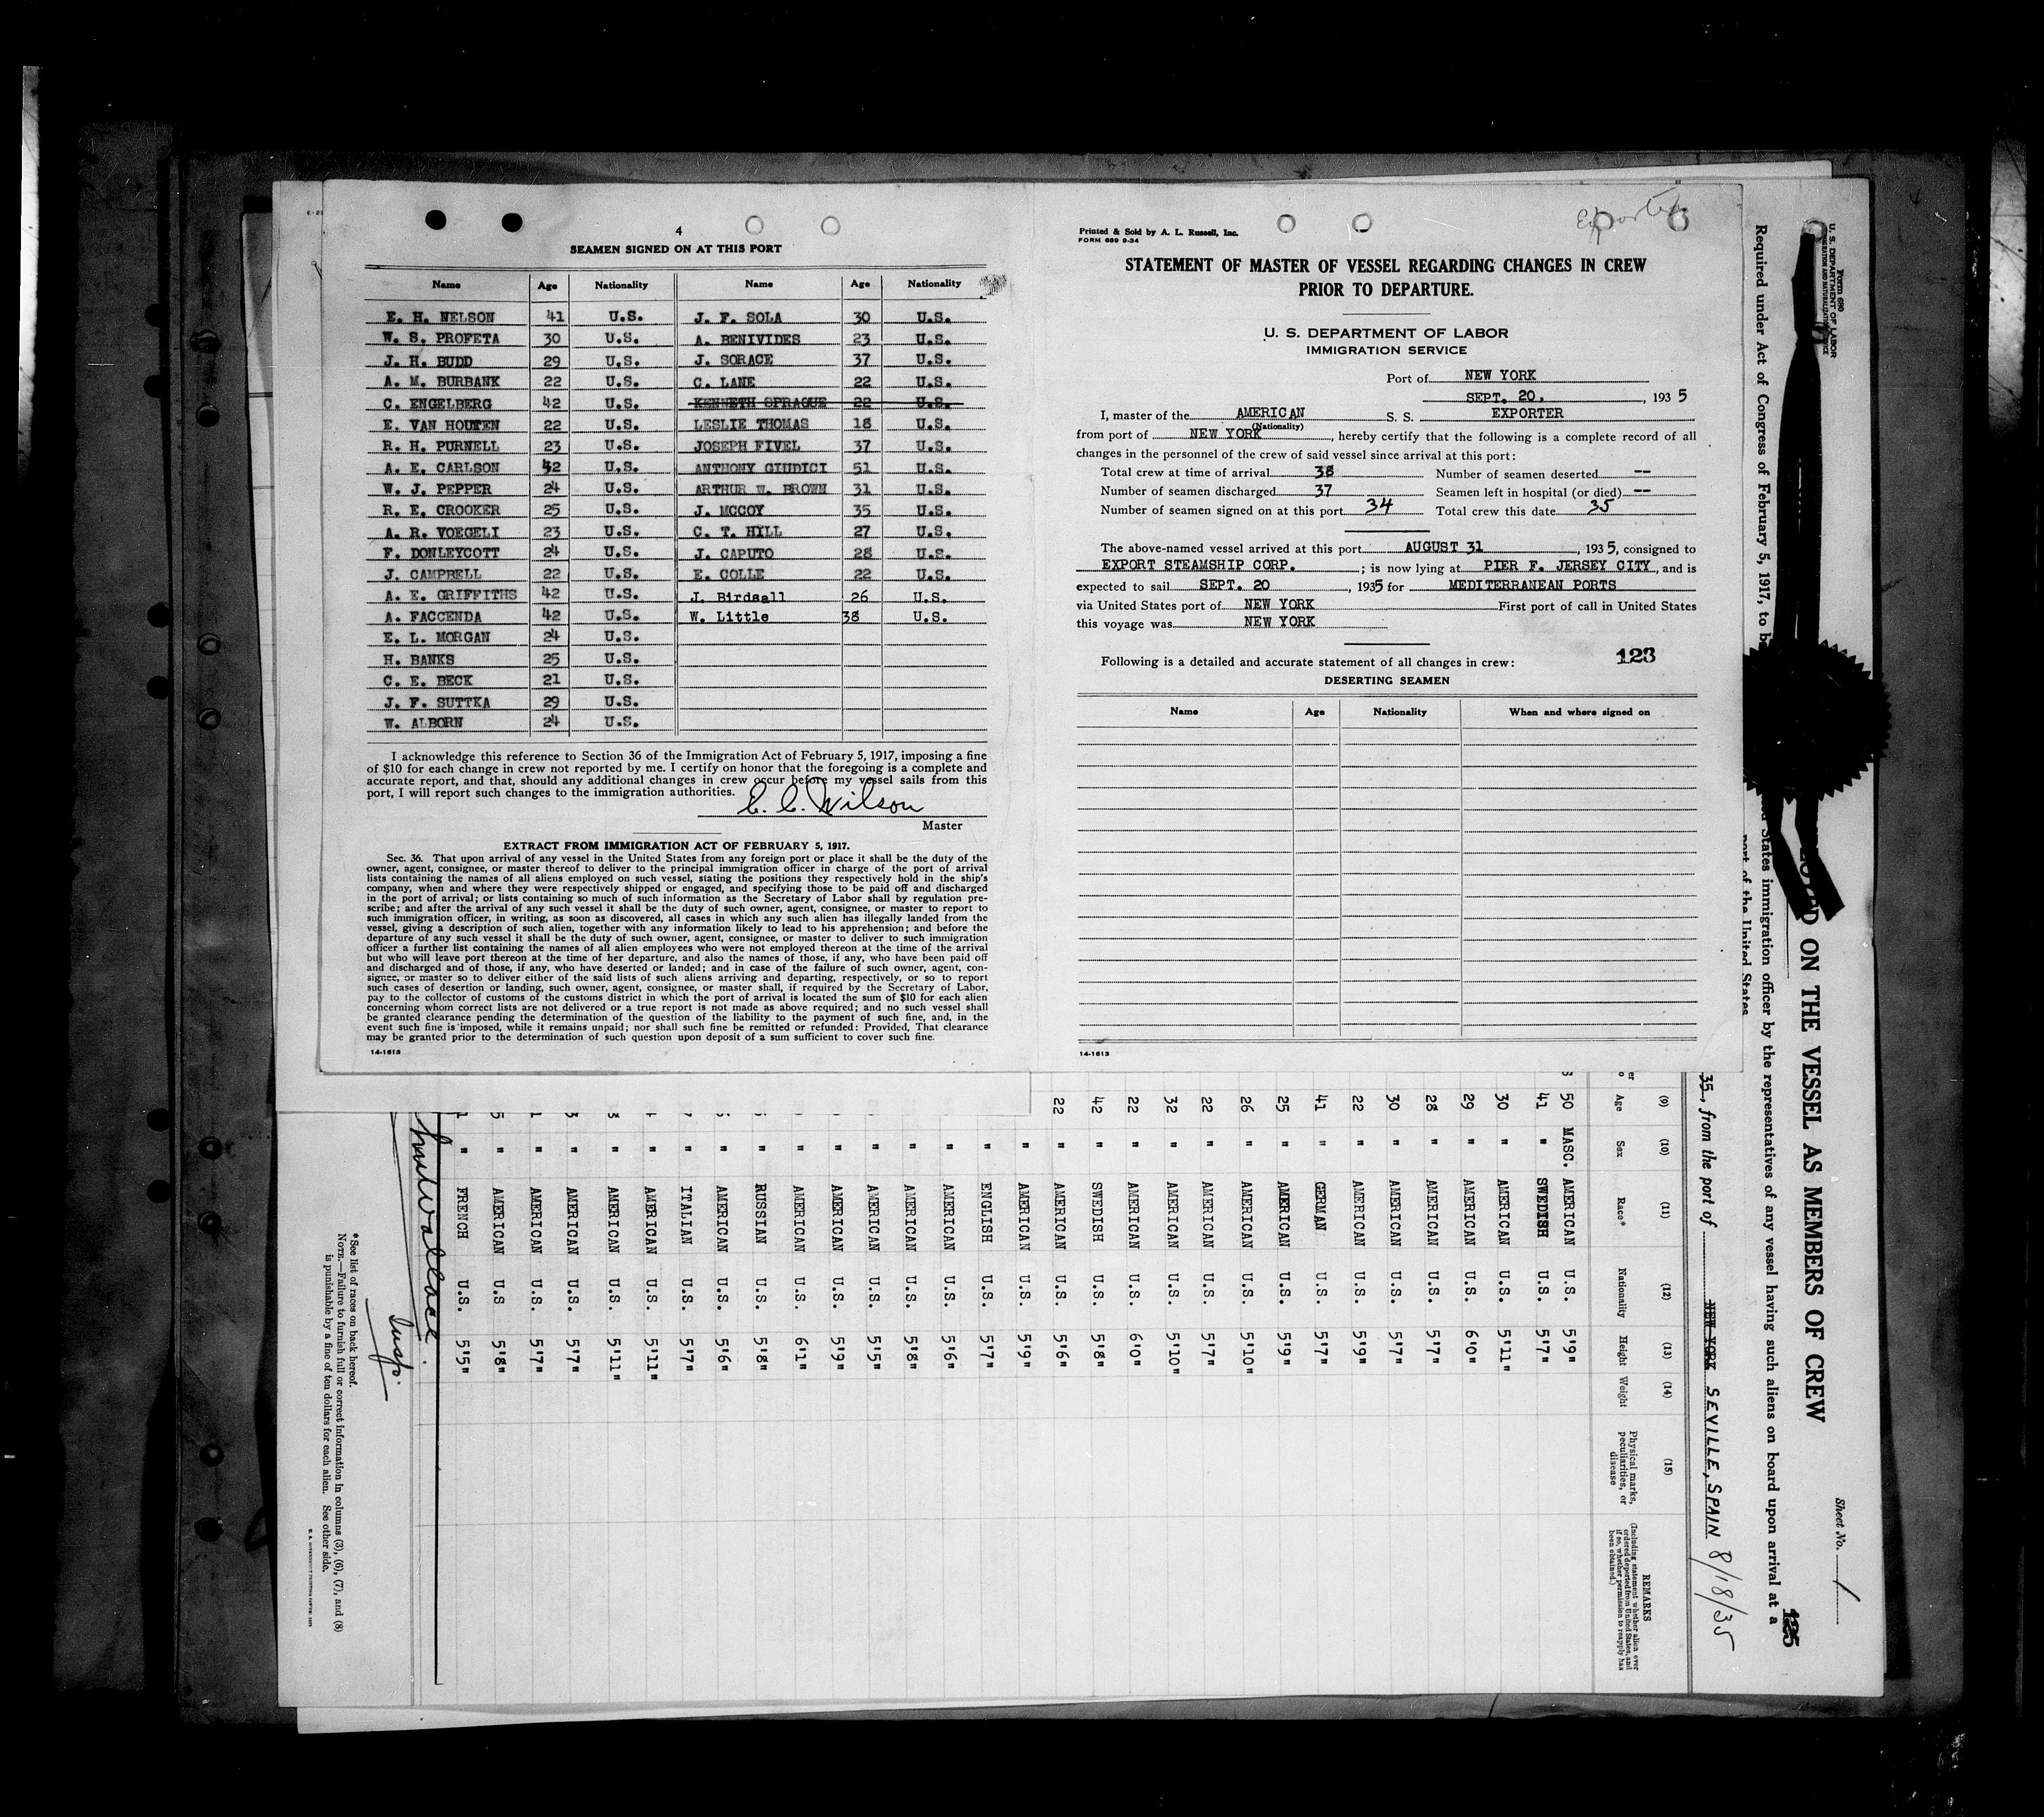 4
SEAMEN SIGNED ON AT THIS PORT
Name Age Nationality Name Age Nationality
E. H. NELSON 41 U.S. J. F. SOLA 30 U.S.
W. S. PROFETA 30 U.S. A. BENIVIDES 23 U.S.
J. H. BUDD 29 U.S. J. SORACE 37 U.S.
A. M. BURBANK 22 U.S. C. LANE 22 U.S.
C. ENGELBERG 42 U.S. KENNETH SPRAGUE 22 U.S.
E. VAN HOUTEN 22 U.S. LESLIE THOMAS 18 U.S.
R. H. PURNELL 23 U.S. JOSEPH FIVEL 37 U.S.
A. E. CARLSON 42 U.S. ANTHONY GIUDICI 51 U.S.
W. J. PEPPER 24 U.S. ARTHUR W. BROWN 31 U.S.
R. E. CROOKER 25 U.S. J. MCCOY 35 U.S.
A. R. VOEGELI 23 U.S. C. T. HYLL 27 U.S.
F. DONLEYCOTT 24 U.S. J. CAPUTO 28 U.S.
J. CAMPBELL 22 U.S. E. COLLE 22 U.S.
A. E. GRIFFITHS 42 U.S. J. Birdsall 26 U.S.
A. FACCENDA 42 U.S. W. Little 38 U.S.
E. L. MORGAN 24 U.S.
H. BANKS 25 U.S.
C. E. BECK 21 U.S.
J. F. SUTTKA 29 U.S.
W. ALBORN 24 U.S.
I acknowledge this reference to Section 36 of the Immigration Act of February 5, 1917, imposing a fine
of $10 for each change in crew not reported by me. I certify on honor that the foregoing is a complete and
accurate report, and that, should any additional changes in crew occur before my vessel sails from this
port, I will report such changes to the immigration authorities.
C. C. Wilson
Master
EXTRACT FROM IMMIGRATION ACT OF FEBRUARY 5, 1917.
Sec. 36. That upon arrival of any vessel in the United States from any foreign port or place it shall be the duty of the
owner, agent, consignee, or master thereof to deliver to the principal immigration officer in charge of the port of arrival
lists containing the names of all aliens employed on such vessel, stating the positions they respectively hold in the ship's
company, when and where they were respectively shipped or engaged, and specifying those to be paid off and discharged
in the port of arrival; or lists containing so much of such information as the Secretary of Labor shall by regulation pre-
scribe; and after the arrival of any such vessel it shall be the duty of such owner, agent, consignee, or master to report to
such immigration officer, in writing, as soon as discovered, all cases in which any such alien has illegally landed from the
vessel, giving a description of such alien, together with any information likely to lead to his apprehension; and before the
departure of any such vessel it shall be the duty of such owner, agent, consignee, or master to deliver to such immigration
officer a further list containing the names of all alien employees who were not employed thereon at the time of the arrival
but who will leave port thereon at the time of her departure, and also the names of those, if any, who have been paid off
and discharged and of those, if any, who have deserted or landed; and in case of the failure of such owner, agent, con-
signee, or master so to deliver either of the said lists of such aliens arriving and departing, respectively, or so to report
such cases of desertion or landing, such owner, agent, consignee, or master shall, if required by the Secretary of Labor,
pay to the collector of customs of the customs district in which the port of arrival is located the sum of $10 for each alien
concerning whom correct lists are not delivered or a true report is not made as above required; and no such vessel shall
be granted clearance pending the determination of the question of the liability to the payment of such fine, and, in the
event such fine is imposed, while it remains unpaid; nor shall such fine be remitted or refunded: Provided, That clearance
may be granted prior to the determination of such question upon deposit of a sum sufficient to cover such fine.
14-1613
Exporter
Printed & Sold by A. L. Russell, Inc.
FORM 689 9-34
STATEMENT OF MASTER OF VESSEL REGARDING CHANGES IN CREW
PRIOR TO DEPARTURE.
U. S. DEPARTMENT OF LABOR
IMMIGRATION SERVICE
Port of NEW YORK
SEPT. 20. , 193 5
I, master of the AMERICAN S. S. EXPORTER
(Nationality)
from port of NEW YORK , hereby certify that the following is a complete record of all
changes in the personnel of the crew of said vessel since arrival at this port:
Total crew at time of arrival 38 Number of seamen deserted --
Number of seamen discharged 37 Seamen left in hospital (or died) --
Number of seamen signed on at this port 34 Total crew this date 35
The above-named vessel arrived at this port AUGUST 31 , 193 5, consigned to
EXPORT STEAMSHIP CORP. ; is now lying at PIER F. JERSEY CITY , and is
expected to sail SEPT. 20 , 1935 for MEDITERRANEAN PORTS
via United States port of NEW YORK First port of call in United States
this voyage was NEW YORK
123
Following is a detailed and accurate statement of all changes in crew:
DESERTING SEAMEN
Name Age Nationality When and where signed on
14-1613
Form 680
U. S. DEPARTMENT OF LABOR
Sheet No. 1
ON THE VESSEL AS MEMBERS OF CREW
125
Required under Act of Congress of February 5, 1917, to b
States immigration officer by the representatives of any vessel having such aliens on board upon arrival at a
port of the United States
35, from the port of NEW YORK SEVILLE, SPAIN 8/18/35
(9) (10) (11) (12) (13) (14) (15)
Age Sex Race* Nationality Height Weight Physical marks, peculiarities, or disease
REMARKS
(Including statement whether alien ever ordered deported from United States, and if so, whether permission to reapply has been obtained.)
50 MASC. AMERICAN U.S. 5'9"
41 " SWEDISH U.S. 5'7"
30 " AMERICAN U.S. 5'11"
29 " AMERICAN U.S. 6'0"
28 " AMERICAN U.S. 5'7"
30 " AMERICAN U.S. 5'7"
22 " AMERICAN U.S. 5'9"
41 " GERMAN U.S. 5'7"
25 " AMERICAN U.S. 5'9"
26 " AMERICAN U.S. 5'10"
22 " AMERICAN U.S. 5'7"
32 " AMERICAN U.S. 5'10"
22 " AMERICAN U.S. 6'0"
42 " SWEDISH U.S. 5'8"
22 " AMERICAN U.S. 5'6"
" AMERICAN U.S. 5'9"
" ENGLISH U.S. 5'7"
" AMERICAN U.S. 5'6"
" AMERICAN U.S. 5'8"
" AMERICAN U.S. 5'5"
" AMERICAN U.S. 5'9"
" AMERICAN U.S. 6'1"
" RUSSIAN U.S. 5'8"
" AMERICAN U.S. 5'6"
" ITALIAN U.S. 5'7"
" AMERICAN U.S. 5'11"
" AMERICAN U.S. 5'11"
" AMERICAN U.S. 5'7"
" AMERICAN U.S. 5'7"
" AMERICAN U.S 5'8"
" FRENCH U.S. 5'5"
Insp.
*See list of races on back hereof.
NOTE.—Failure to furnish full or correct information in columns (3), (6), (7), and (8)
is punishable by a fine of ten dollars for each alien. See other side.